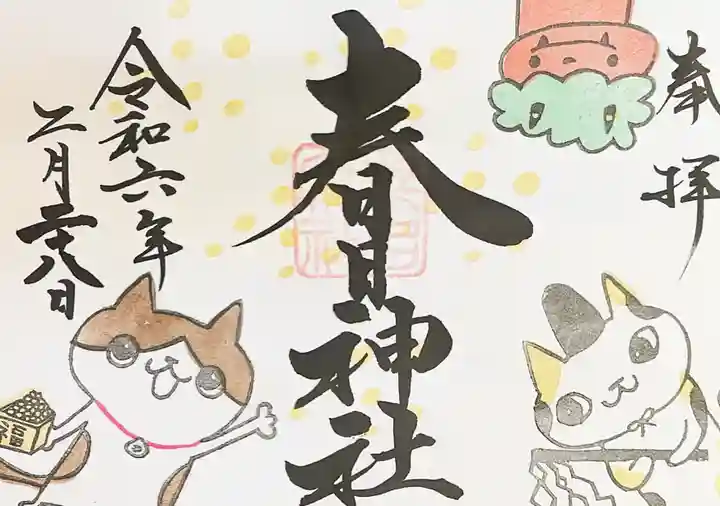 奉拝
春日神社
令和六年
二月二十八日
福